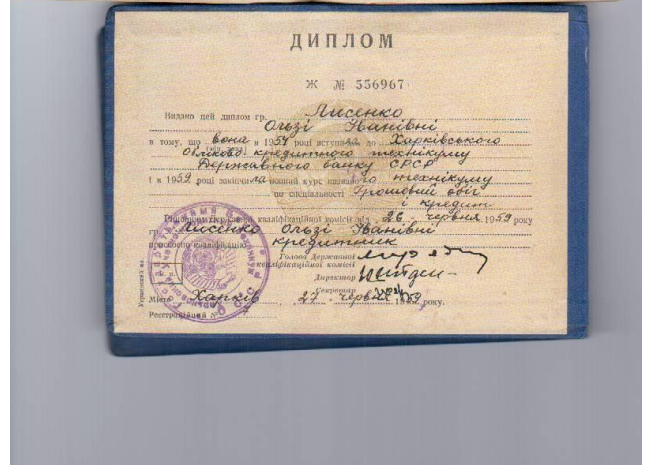 ДИПЛОМ
Ж № 556967
Видано цей диплом гр. Лисенко
Ользі Іванівні
в тому, що вона в 1957 році вступила до Харківського
обліково-кредитного технікуму
Державного банку СРСР
і в 1959 році закінчила повний курс названого технікуму
по спеціальності Грошовий обіг
і кредит
Рішенням Державної кваліфікаційної комісії від 26 червня 1959 року
гр. Лисенко Ользі Іванівні
присвоєно кваліфікацію кредитник
Голова Державної
кваліфікаційної комісії
Директор
Секретар
Місто Харків, 27 червня 1959 року.
Реєстраційний №
Українська